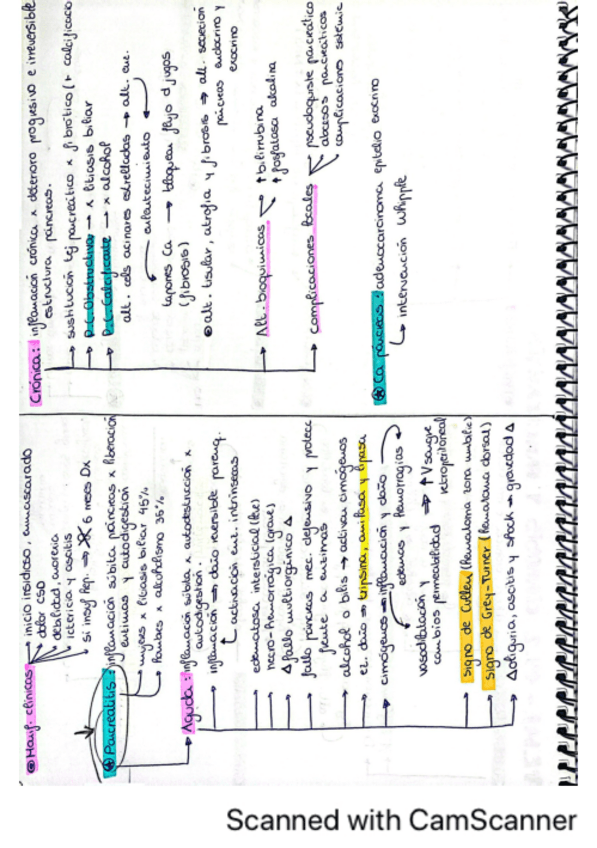 ⊛ Manf. clínicas → inicio insidioso, enmascarado
→ dolor CSD
→ debilidad, anorexia
→ ictericia y ascitis
↳ si insuf hep. ⇒ 6 meses Dx
⊛ Pancreatitis: inflamación súbita páncreas x liberación
enzimas y autodigestión
→ mujeres x litiasis biliar 45%
→ hombres x alcoholismo 35%
→ Aguda: inflamación súbita x autodestrucción x
autodigestión.
inflamación ⇒ daño reversible parenq.
↳ activación enz. intrínsecas
→ edematosa intersticial (leve)
→ necro-hemorrágica (grave)
→ Δ fallo multiorgánico Δ
→ fallo páncreas mec. defensivo y protecc
frente a enzimas
→ alcohol o bilis → activan cimógenos
→ ez. daño ⇒ tripsina, amilasa y lipasa
→ cimógenos ⇒ inflamación y daño
edemas y hemorragias
vasodilatación y
cambios permeabilidad → ↑ V sangre
retroperitoneal
→ signo de Cullen (hematoma zona umbilic)
→ signo de Grey-Turner (hematoma dorsal)
→ Δ oliguria, ascitis y shock → gravedad Δ
Crónica: inflamación crónica x deterioro progresivo e irreversible
estructura páncreas.
→ sustitución tej pancreático x fibrótico (+ calcificació
→ P.C. Obstructiva → x litiasis biliar
→ P.C. Calcificante → x alcohol
alt. cels acinares estrelladas → alt. enz.
enlentecimiento
tapones Ca → bloquean flujo d jugos
(fibrosis)
⊛ alt. tisular, atrofia y fibrosis ⇒ alt. secreción
páncreas endocrino y
exocrino
→ Alt. bioquímicas → ↑ bilirrubina
↑ fosfatasa alcalina
→ complicaciones locales → pseudoquiste pancreático
abscesos pancreáticos
complicaciones sistémic
⊛ Ca páncreas: adenocarcinoma epitelio exocrino
↳ intervención Whipple
Scanned with CamScanner